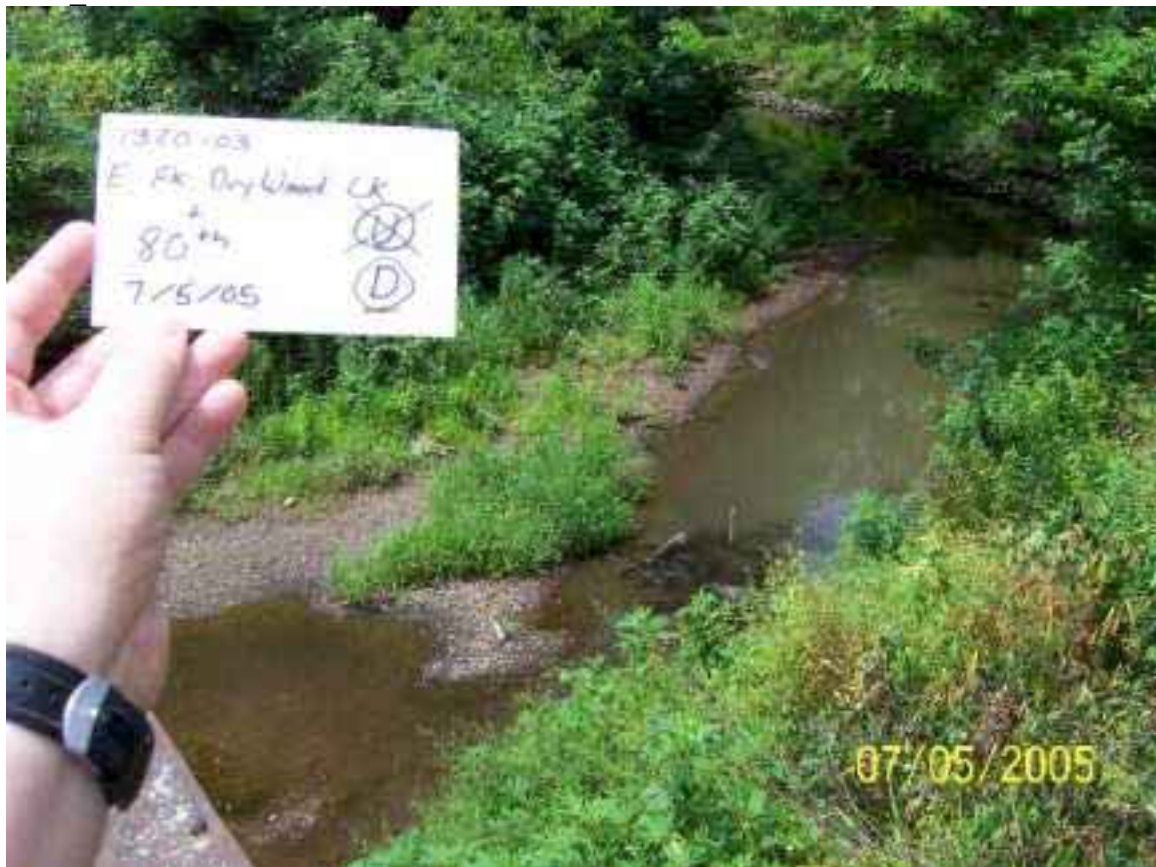 1320-03
E. Fk Dry Wood CK
+
80th
7/5/05
D
07/05/2005